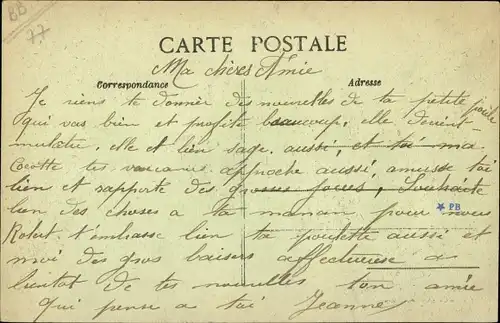 88
77
CARTE POSTALE
Ma chères Amie
Correspondance
Adresse
Je viens te donner des nouvelles de ta petite
qui vas bien et profite beaucoup, elle devient
mulatre, elle et bien sage, aussi, et toi ma
Cocotte tes vacances approche aussi, amuse toi
bien et rapporte des grosses joues, Souhaite
bien des choses a ta maman pour nous
★ PB
Robert t'embrasse bien ta poulette aussi et
moi des gros baisers affectueuse a
bientot de tes nouvelles ton amie
qui pense a toi Jeanne